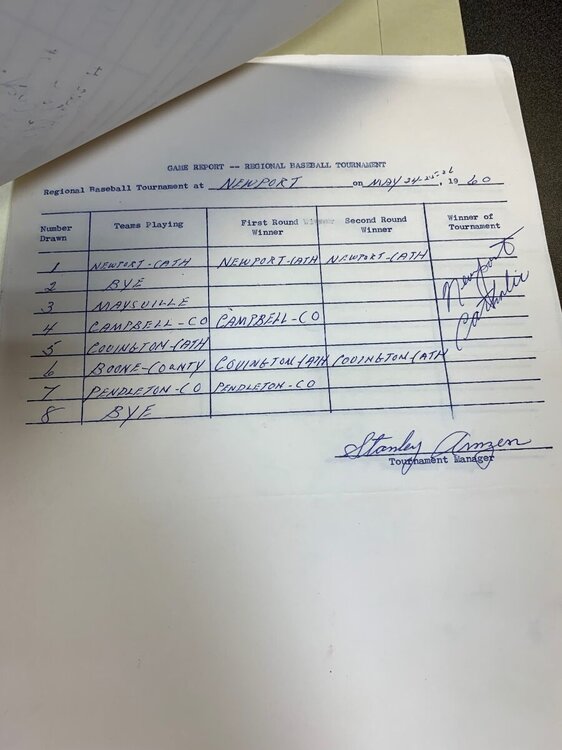 GAME REPORT -- REGIONAL BASEBALL TOURNAMENT
Regional Baseball Tournament at NEWPORT on MAY 24-25-26, 1960
Number Drawn Teams Playing First Round Winner Second Round Winner Winner of Tournament
1 NEWPORT-CATH NEWPORT-CATH NEWPORT-CATH Newport Catholic
2 BYE
3 MAYSVILLE
4 CAMPBELL-CO CAMPBELL-CO
5 COVINGTON-CATH
6 BOONE-COUNTY COVINGTON CATH COVINGTON-CATH
7 PENDLETON-CO PENDLETON-CO
8 BYE
Stanley Arnzen
Tournament Manager